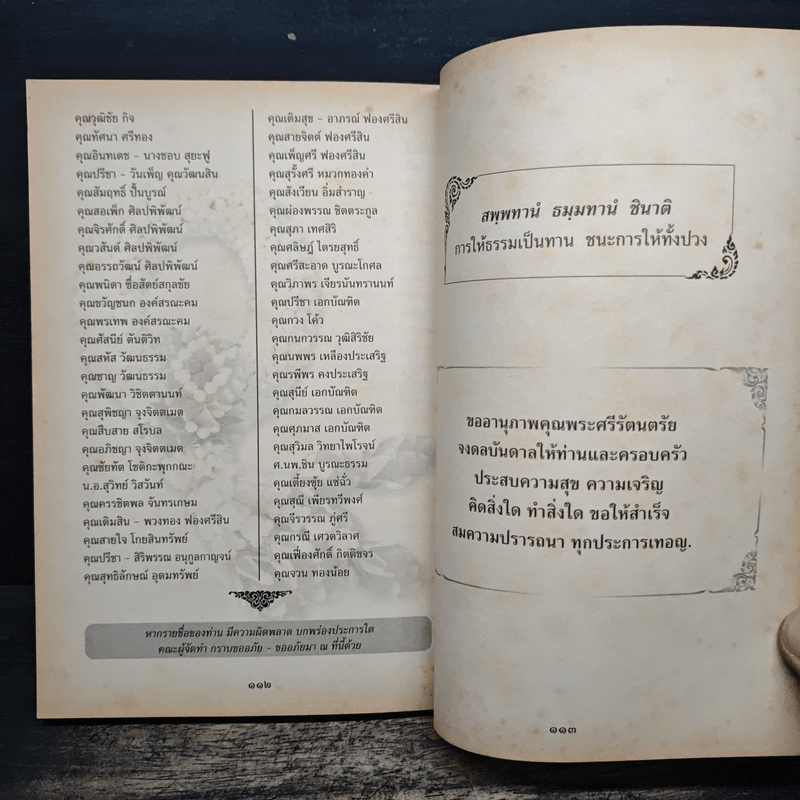 คุณวุฒิชัย กิจ
คุณทัศนา ศรีทอง
คุณอินทเดช - นางชอบ สุยะฟู
คุณปรีชา - วันเพ็ญ คุณวัฒนสิน
คุณสัมฤทธิ์ ปั้นบูรณ์
คุณสอเพ็ก ศิลปพิพัฒน์
คุณจิรศักดิ์ ศิลปพิพัฒน์
คุณวสันต์ ศิลปพิพัฒน์
คุณอรรถวัฒน์ ศิลปพิพัฒน์
คุณพนิดา ชื่อสัตย์สกุลชัย
คุณขวัญชนก องค์สรณะคม
คุณพรเทพ องค์สรณะคม
คุณศัสนีย์ ตันติวิท
คุณสหัส วัฒนธรรม
คุณชาญ วัฒนธรรม
คุณพัฒนา วิชิตตานนท์
คุณสุพิชญา จุงจิตตเมต
คุณสืบสาย สโรบล
คุณอภิชญา จุงจิตตเมต
คุณชัยทัต โชติกะพุกกณะ
น.อ.สุวิทย์ วิสวันท์
คุณครรชิตพล จันทรเกษม
คุณเติมสิน - พวงทอง ฟองศรีสิน
คุณสายใจ โกยสินทรัพย์
คุณปรีชา - สิริพรรณ อนุกูลกาญจน์
คุณสุทธิลักษณ์ อุดมทรัพย์
คุณเติมสุข - อาภรณ์ ฟองศรีสิน
คุณสายจิตต์ ฟองศรีสิน
คุณเพ็ญศรี ฟองศรีสิน
คุณสุรั้งศรี หมวกทองคำ
คุณสังเวียน อิ่มสำราญ
คุณผ่องพรรณ ชิตตระกูล
คุณสุภา เทศสิริ
คุณศลิษฎ์ ไตรยสุทธิ์
คุณศรีสะอาด บูรณะโกศล
คุณวิภาพร เจียรนันทรานนท์
คุณปรีชา เอกบัณฑิต
คุณกวง โค้ว
คุณกนกวรรณ วุฒิสิริชัย
คุณนพพร เหลืองประเสริฐ
คุณรพีพร คงประเสริฐ
คุณสุนีย์ เอกบัณฑิต
คุณกมลวรรณ เอกบัณฑิต
คุณศุภมาส เอกบัณฑิต
คุณสุวิมล วิทยาไพโรจน์
ศ.นพ.ชิน บูรณะธรรม
คุณเตี้ยงซุ้ย แซ่ฉั่ว
คุณสุณี เพียรทวีพงศ์
คุณจีรวรรณ ภู่ศรี
คุณกรณี เศวตวิลาศ
คุณเฟื่องศักดิ์ กิตติขจร
คุณจวน ทองน้อย
หากรายชื่อของท่าน มีความผิดพลาด บกพร่องประการใด
คณะผู้จัดทำ กราบขออภัย - ขออภัยมา ณ ที่นี้ด้วย
๑๑๒
สพฺพทานํ ธมฺมทานํ ชินาติ
การให้ธรรมเป็นทาน ชนะการให้ทั้งปวง
ขออานุภาพคุณพระศรีรัตนตรัย
จงดลบันดาลให้ท่านและครอบครัว
ประสบความสุข ความเจริญ
คิดสิ่งใด ทำสิ่งใด ขอให้สำเร็จ
สมความปรารถนา ทุกประการเทอญ.
๑๑๓